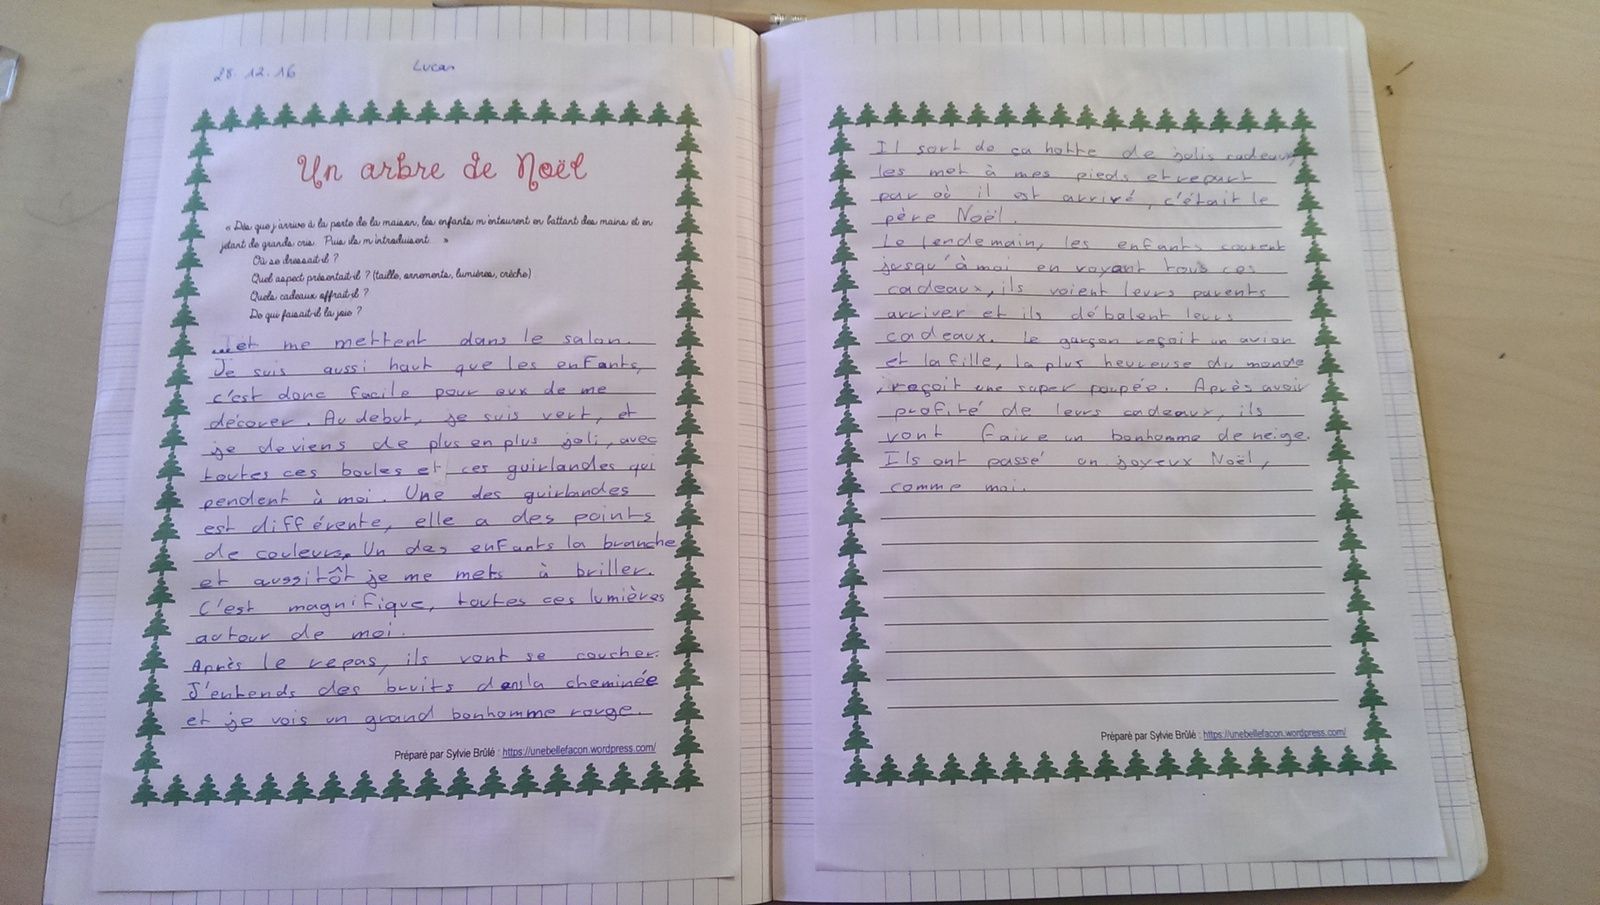 28.12.16 Lucas
Un arbre de Noël
« Dès que j'arrive à la porte de la maison, les enfants m'entourent en battant des mains et en
jetant de grands cris. Puis ils m'introduisent... »
Où se dressait-il ?
Quel aspect présentait-il ? (taille, ornements, lumières, crèche)
Quels cadeaux offrait-il ?
De qui faisait-il la joie ?
...et me mettent dans le salon.
Je suis aussi haut que les enfants,
c'est donc facile pour eux de me
décorer. Au debut, je suis vert, et
je deviens de plus en plus joli, avec
toutes ces boules et ces guirlandes qui
pendent à moi. Une des guirlandes
est différente, elle a des points
de couleurs. Un des enfants la branche
et aussitôt je me mets à briller.
C'est magnifique, toutes ces lumières
autour de moi.
Après le repas, ils vont se coucher.
J'entends des bruits dans la cheminée
et je vois un grand bonhomme rouge.
Préparé par Sylvie Brûlé : https://unebellefacon.wordpress.com/
Il sort de ça hotte de jolis cadeaux,
les met à mes pieds et repart
par où il est arrivé, c'était le
père Noël.
Le lendemain, les enfants courent
jusqu'à moi en voyant tous ces
cadeaux, ils voient leurs parents
arriver et ils débalent leurs
cadeaux. Le garçon reçoit un avion
et la fille, la plus heureuse du monde
, reçoit une super poupée. Après avoir
profité de leurs cadeaux, ils
vont faire un bonhomme de neige.
Ils ont passé un joyeux Noël,
comme moi.
Préparé par Sylvie Brûlé : https://unebellefacon.wordpress.com/